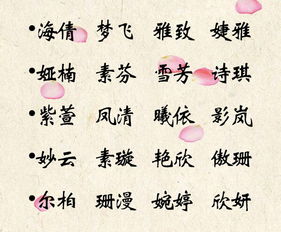 •海倩 梦飞 雅致 婕雅
•娅楠 素芬 雪芳 诗琪
•紫萱 凤清 曦依 影岚
•妙云 素璇 艳欣 傲珊
•尔柏 珊漫 婉婷 欣妍